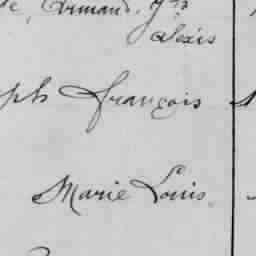 Armand,
Alexis
ph François
Marie Louis